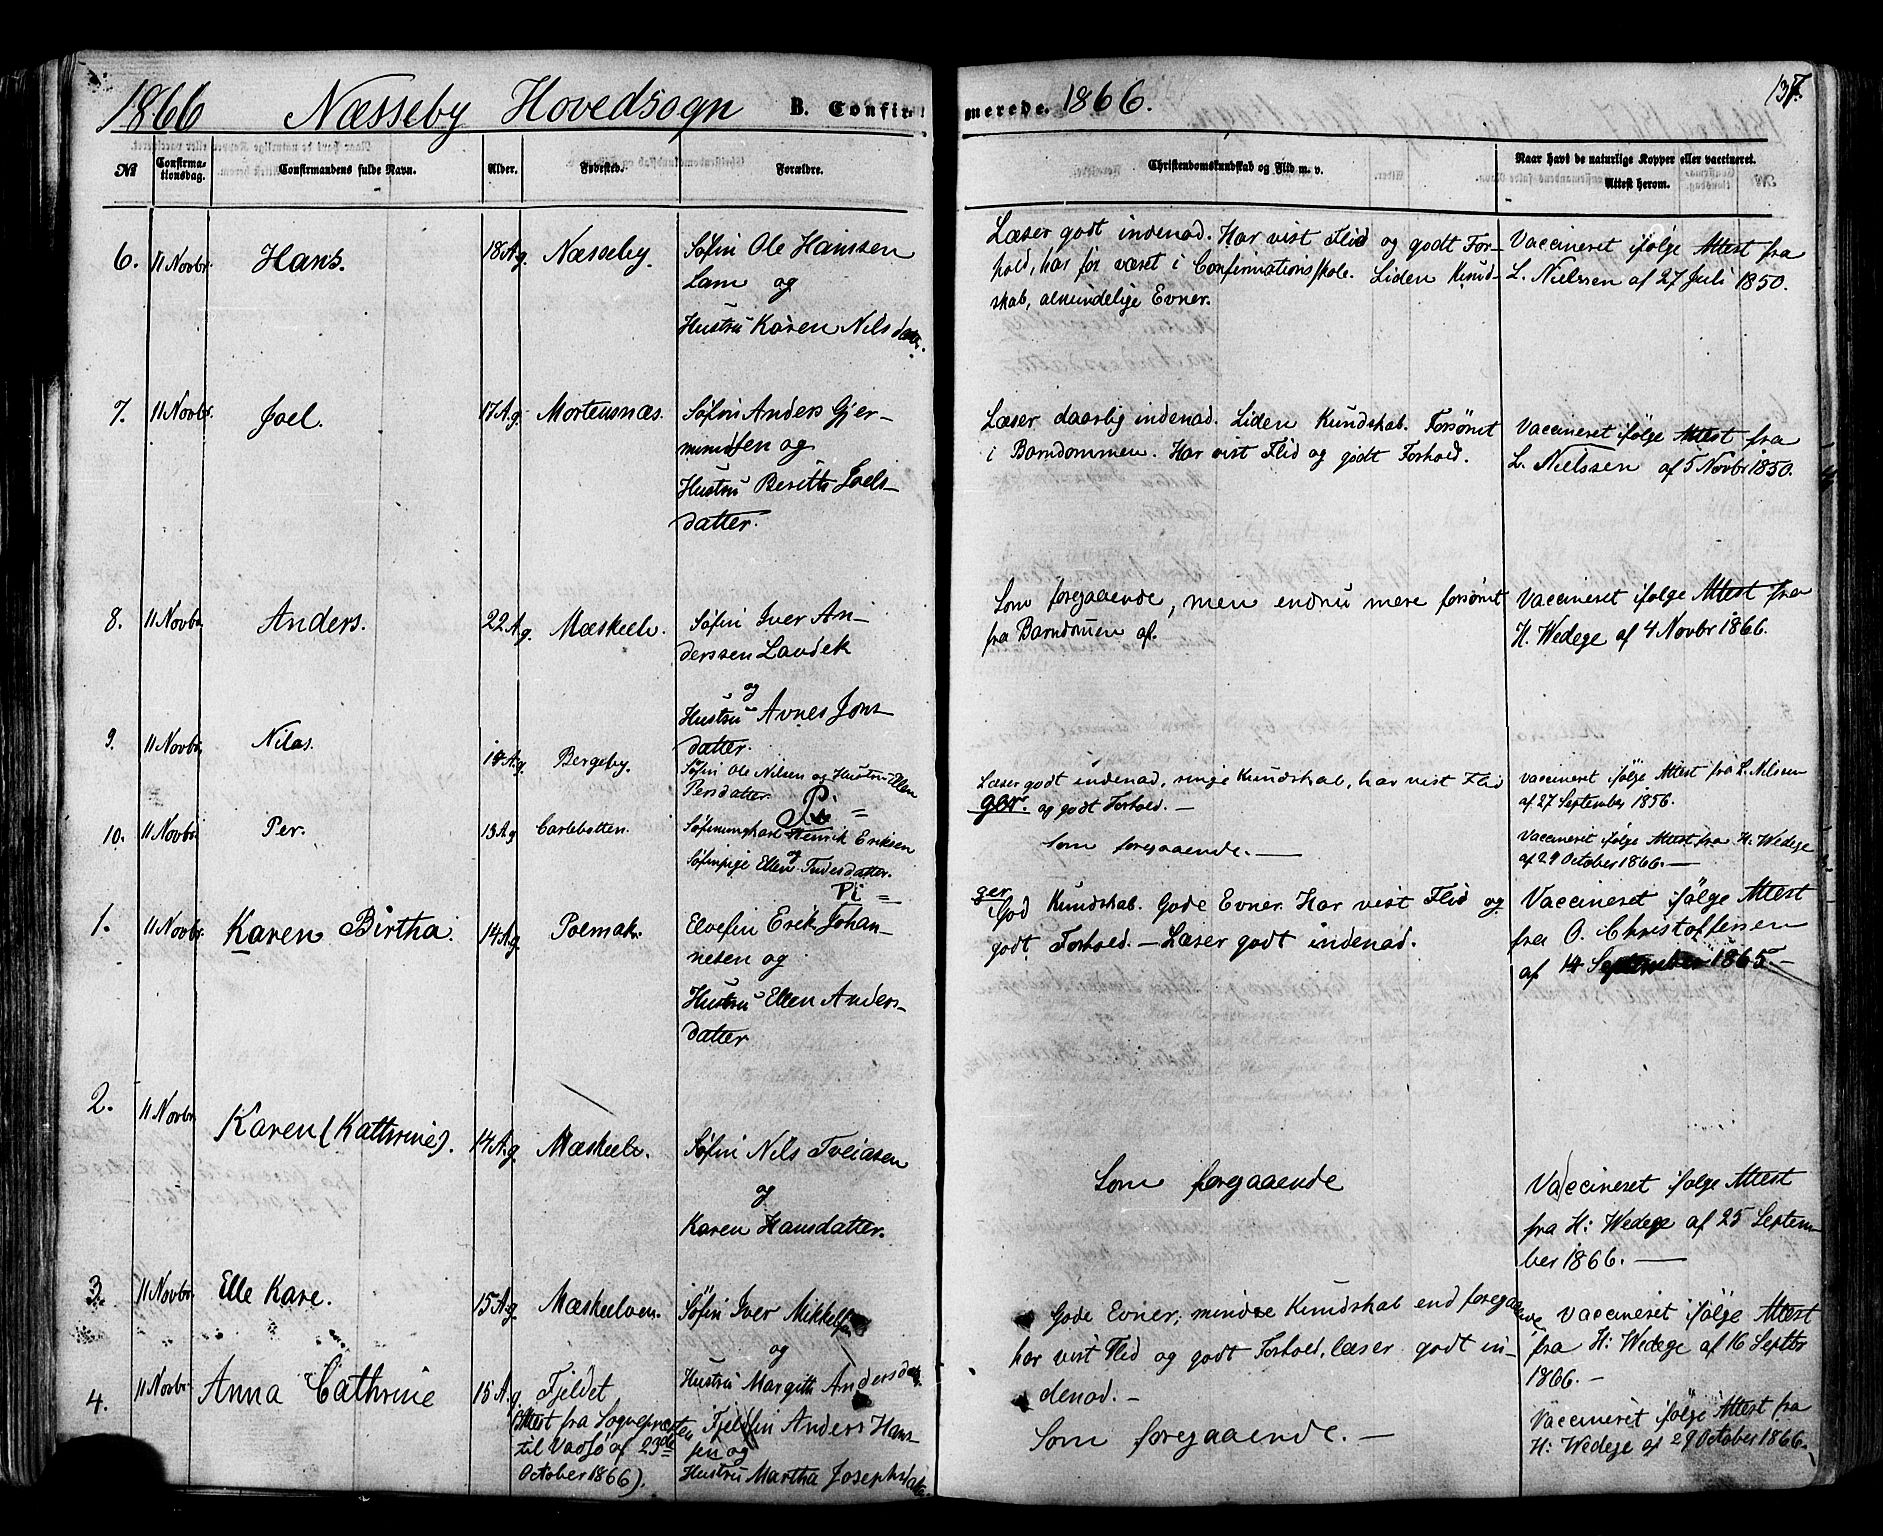 1866 Næsseby Hovedsogn B. Confir-
merede. 1866. 137.
No Confirma-
tionsdag. Confirmandens fulde Navn. Alder. Fødested. Forældre. Christendomskundskab og Flid m. v. Naar havt de naturlige Kopper eller vaccineret.
Attest herom.
6. 11 Novbr. Hans. 18 A.g. Næsseby. Søfin Ole Hanssen
Lam og
Hustru Karen Nilsdatter.
Læser godt indenad. Har vist Flid og godt For-
hold, har før været i Confirmationsskole. Liden Kund-
skab, almindelige Evner.
Vaccineret ifølge Attest fra
L. Nielssen af 27 Juli 1850.
7. 11 Novbr. Joel. 17 A.g. Mortensnæs. Søfin Anders Gjer-
mundsen og
Hustru Beritth Joels-
datter.
Læser daarlig indenad. Liden Kundskab. Forsømt
i Barndommen. Har vist Flid og godt Forhold.
Vaccineret ifølge Attest fra
L. Nielssen af 5 Novbr 1850.
8. 11 Novbr. Anders. 22 A.g. Mæskeelv. Søfin Iver An-
derssen Laudek
og
Hustru Avnes Jons-
datter.
Som foregaaende, men endnu mere forsømt
fra Barndomen af.
Vaccineret ifølge Attest fra
H. Wedege af 4 Novbr 1866.
9. 11 Novbr. Nilas. 14 A.g. Bergeby. Søfin Ole Nilsen og Hustru Ellen
Persdatter.
Læser godt indenad, ringe Kundskab, har vist Flid
og godt Forhold. —
vaccineret ifølge Attest fra L. Nilsen
af 27 September 1856.
10. 11 Novbr. Per. 18 A.g. Carlebotten. Søfinungkarl Henrik Eriksen
og
Søfinpige Ellen Indesdatter.
Som foregaaende. —
Vaccineret ifølge Attest fra H. Wedege
af 29 October 1866. —
1. 11 Novbr. Karen Birtha. 14 A.g. Polmak. Elvefin Erik Johan-
nesen og
Hustru Ellen Anders-
datter
God Kundskab. Gode Evner. Har vist Flid og
godt Forhold. — Læser godt indenad.
Vaccineret ifølge Attest
fra O. Christoffersen
af 14 September 1865. —
2. 11 Novbr. Karen (Kathrine). 14 A.g. Mæskeelv. Søfin Nils Tveiasen
og
Karen Hansdatter.
Som foregaaende
Vaccineret ifølge Attest
fra H: Wedege af 25 Septem-
ber 1866. —
3. 11 Novbr. Elle Kare. 15 A.g. Mæskeelven. Søfin Iver Mikkelsen
og
Hustru Margith Andersdatt.
Gode Evner, mindre Kundskab end foregaaende,
har vist Flid og godt Forhold, læser godt in-
denad. —
Vaccineret ifølge Attest
fra H: Wedege af 16 Septbr
1866. —
4. 11 Novbr. Anna Cathrine 15 A.g. Fjeldet
(Attest fra Sognepræsten
til Vadsø af 23de
October 1866).
Fjelfin Anders Hans-
sen og
Hustru Martha Josephsdatter.
Som foregaaende. —
Vaccineret ifølge Attest fra
H: Wedege af 29 October 1866.